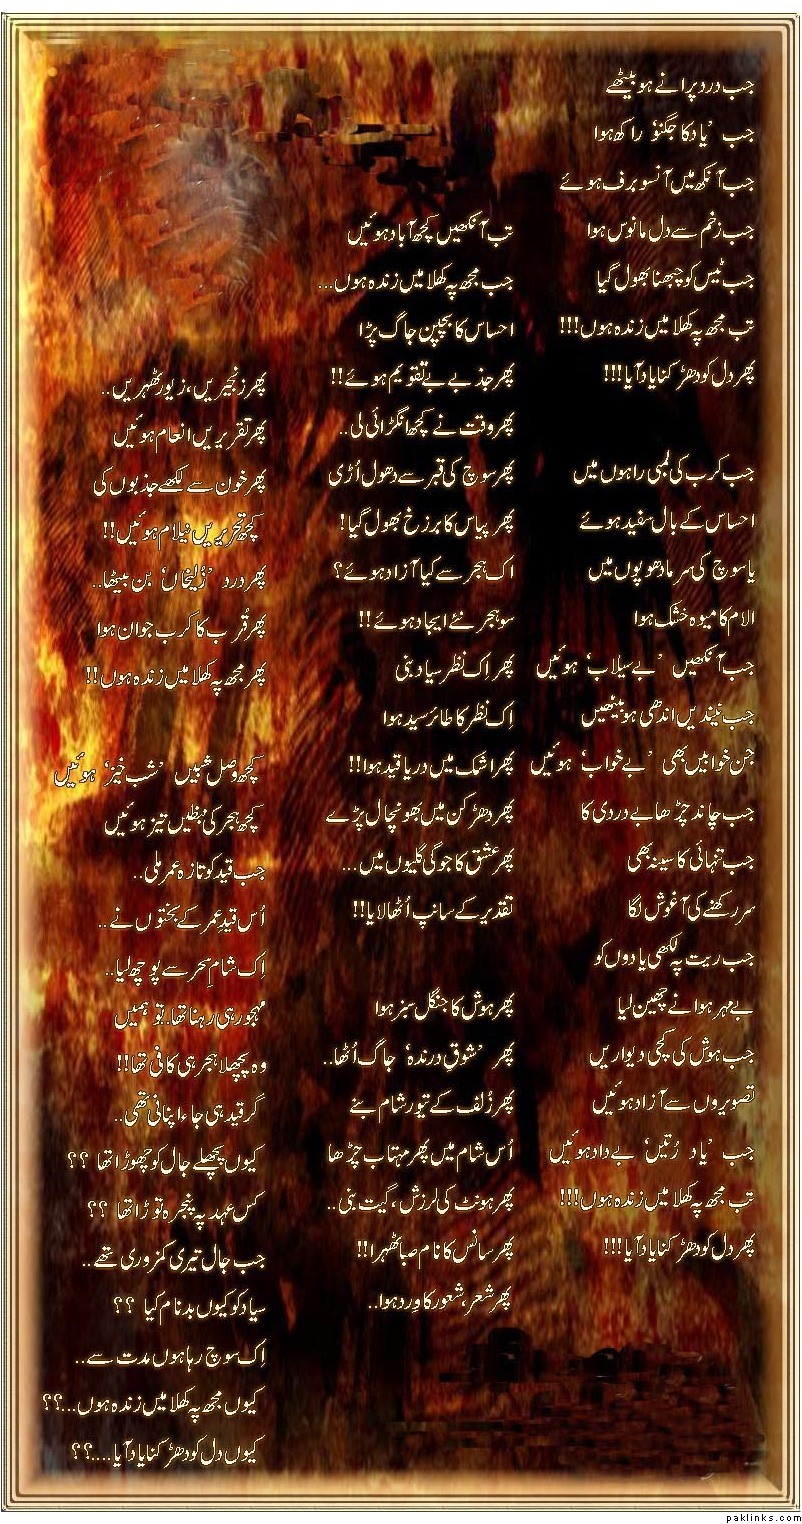 جب درد پرانے ہو بیٹھے
جب ’یاد کا جگنو‘ راکھ ہوا
جب آنکھ میں آنسو برف ہوئے
جب زخم سے دل مانوس ہوا
جب ٹیس کو چبھنا بھول گیا
تب مجھ پہ کھلا میں زندہ ہوں!!!
پھر دل کو دھڑکنا یاد آیا!!!
جب کرب کی لمبی راہوں میں
احساس کے بال سفید ہوئے
یا سوچ کی سرما دھوپوں میں
الام کا میوہ خشک ہوا
جب آنکھیں ’بے سیلاب‘ ہوئیں
جب نیندیں اندھی ہو بیٹھیں
جن خوابیں بھی ’بے خواب‘ ہوئیں
جب چاند چڑھا بے دردی کا
جب تنہائی کا سینہ بھی
سر رکھنے کی آغوش لگا
جب ریت پہ لکھی یادوں کو
بے مہر ہوا نے چھین لیا
جب ہوش کی کچی دیواریں
تصویروں سے آزاد ہوئیں
جب ’یاد رُتیں‘ بے داد ہوئیں
تب مجھ پہ کھلا میں زندہ ہوں!!!
پھر دل کو دھڑکنا یاد آیا!!!
تب آنکھیں کچھ آباد ہوئیں
جب مجھ پہ کھلا میں زندہ ہوں...
احساس کا بچپن جاگ پڑا
پھر جذبے بے تقویم ہوئے!!
پھر وقت نے کچھ انگڑائی لی..
پھر سوچ کی قبر سے دھول اُڑی
پھر پیاس کا برزخ بھول گیا!
اک ہجر سے کیا آزاد ہوئے؟
سو ہجر نئے ایجاد ہوئے!!
پھر اِک نظر سیاد بنی
اِک نظر کا طائر سید ہوا
پھر اشک میں دریا قید ہوا!!
پھر دھڑکن میں بھونچال پڑے
پھر عشق کا جوگی گلیوں میں...
تقدیر کے سانپ اُٹھا لایا!!
پھر ہوش کا جنگل سبز ہوا
پھر ’شوقِ درندہ‘ جاگ اُٹھا..
پھر زُلف کے تیور شام بنے
اُس شام میں پھر مہتاب چڑھا
پھر ہونٹ کی لرزش، گیت بنی..
پھر سانس کا نام صبا ٹھہرا!!
پھر شعر، شعور کا وِرد ہوا..
پھر زنجیریں، زیور ٹھہریں..
پھر تقریریں انعام ہوئیں
پھر خون سے لکھے جذبوں کی
کچھ تحریریں نیلام ہوئیں!!
پھر درد ’زُلیخاں‘ بن بیٹھا..
پھر قُرب کا کرب جوان ہوا
پھر مجھ پہ کھلا میں زندہ ہوں!!
کچھ وصل شبیں ’شب خیز‘ ہوئیں
کچھ ہجر کی نبظیں تیز ہوئیں
جب قید کو تازہ عمر ملی..
اُس قیدِ عمر کے بختوں نے..
اِک شامِ سحر سے پوچھ لیا..
مہجور ہی رہنا تھا.. تو ہمیں
وہ پچھلا ہجر ہی کافی تھا!!
گر قید ہی جاء اپنانی تھی..
کیوں پچھلے جال کو چھوڑا تھا ؟؟
کس عہد پہ پنجرہ توڑا تھا ؟؟
جب جال تیری کمزوری تھے..
سیاد کو کیوں بدنام کیا ؟؟
اِک سوچ رہا ہوں مدت سے..
کیوں مجھ پہ کھلا میں زندہ ہوں...؟؟
کیوں دل کو دھڑکنا یاد آیا....؟؟
paklinks.com